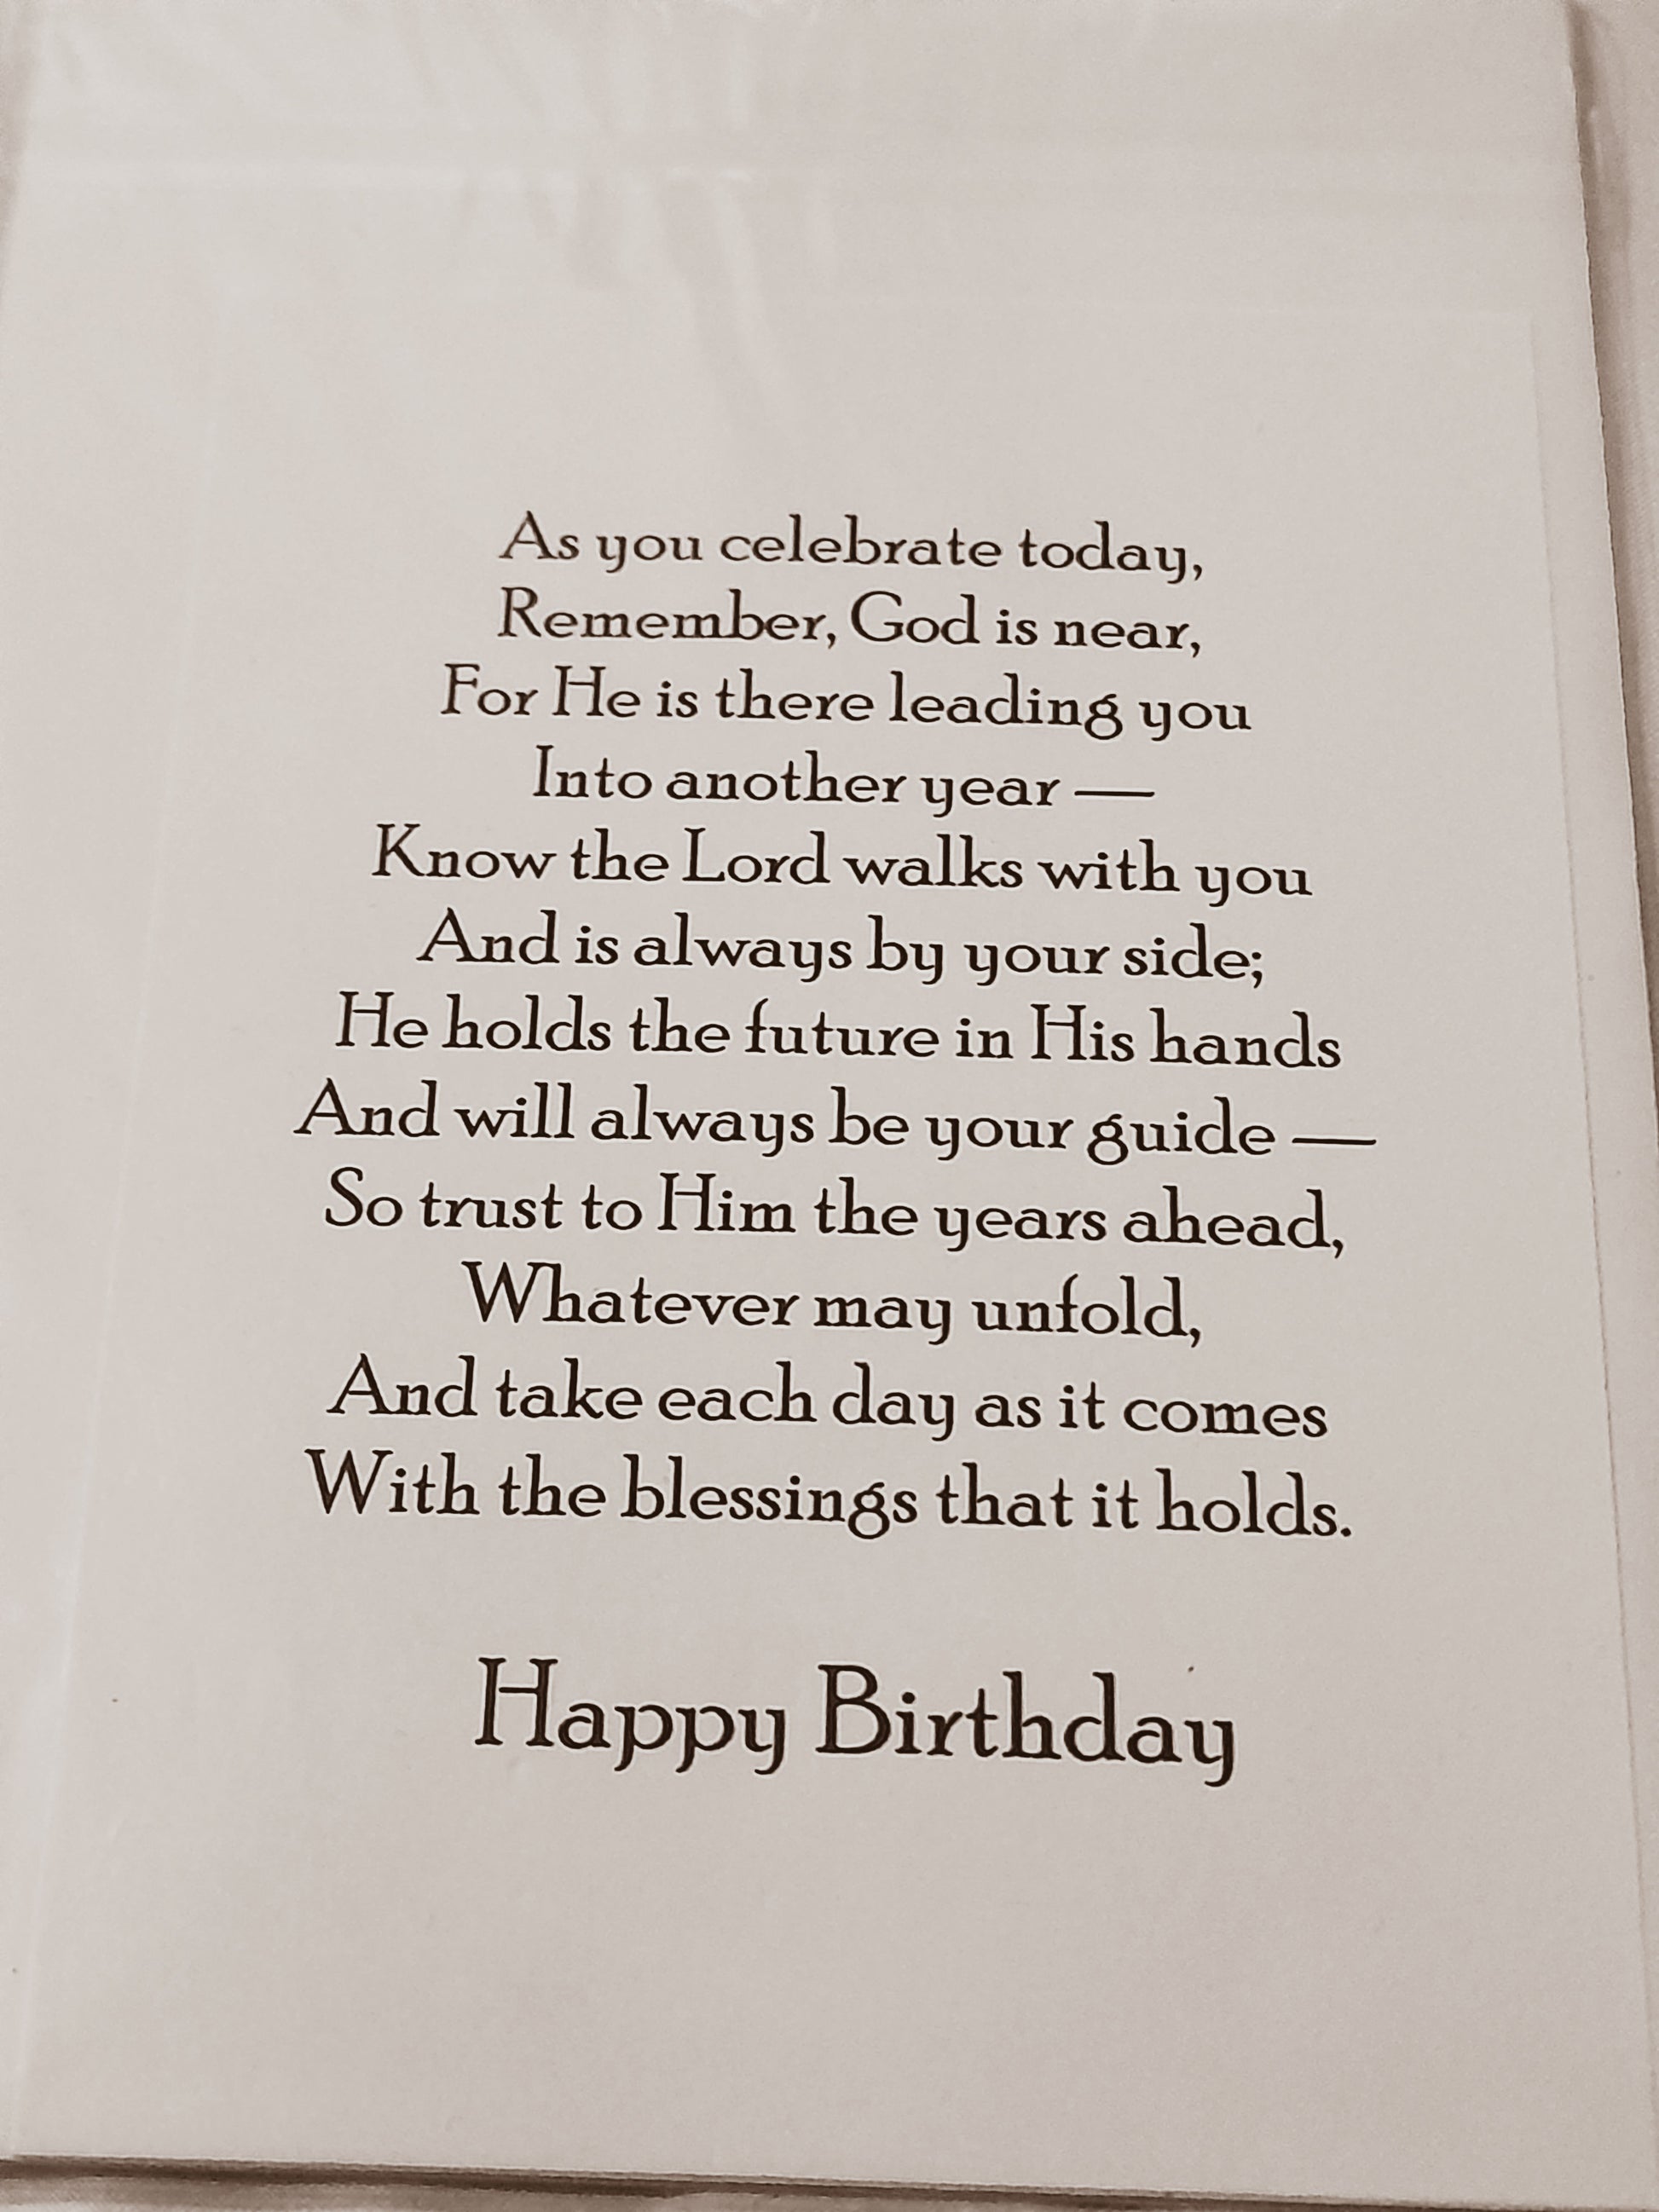 As you celebrate today,
Remember, God is near,
For He is there leading you
Into another year —
Know the Lord walks with you
And is always by your side;
He holds the future in His hands
And will always be your guide —
So trust to Him the years ahead,
Whatever may unfold,
And take each day as it comes
With the blessings that it holds.
Happy Birthday